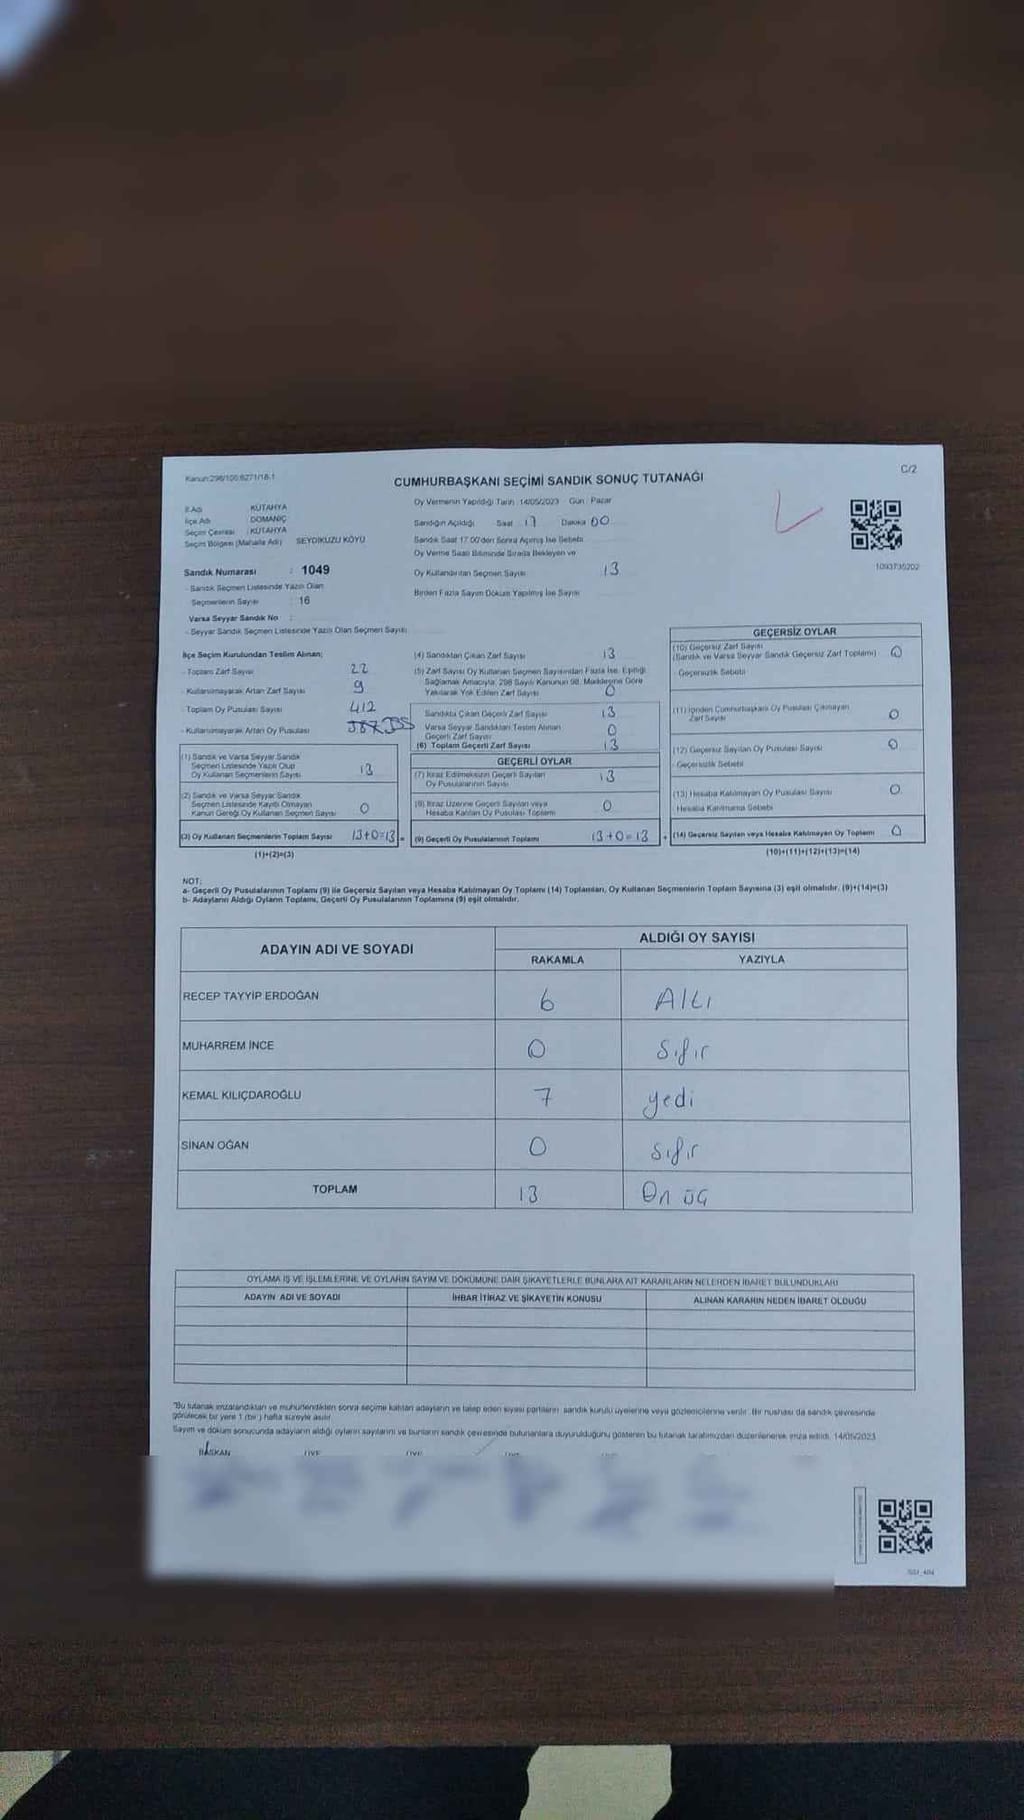 Kanun:298/100;6271/18-1
C/2
CUMHURBAŞKANI SEÇİMİ SANDIK SONUÇ TUTANAĞI
İl Adı : KÜTAHYA
İlçe Adı : DOMANİÇ
Seçim Çevresi : KÜTAHYA
Seçim Bölgesi (Mahalle Adı) : SEYDİKUZU KÖYÜ
Sandık Numarası : 1049
- Sandık Seçmen Listesinde Yazılı Olan
Seçmenlerin Sayısı : 16
Varsa Seyyar Sandık No :
- Seyyar Sandık Seçmen Listesinde Yazılı Olan Seçmen Sayısı
Oy Vermenin Yapıldığı Tarih : 14/05/2023 Gün : Pazar
Sandığın Açıldığı Saat : 17 Dakika 00
Sandık Saat 17.00'den Sonra Açılmış İse Sebebi
Oy Verme Saati Bitiminde Sırada Bekleyen ve
Oy Kullandırılan Seçmen Sayısı 13
Birden Fazla Sayım Döküm Yapılmış İse Sayısı
1093735202
İlçe Seçim Kurulundan Teslim Alınan;
- Toplam Zarf Sayısı 22
- Kullanılmayarak Artan Zarf Sayısı 9
- Toplam Oy Pusulası Sayısı 412
- Kullanılmayarak Artan Oy Pusulası
(1) Sandık ve Varsa Seyyar Sandık
Seçmen Listesinde Yazılı Olup
Oy Kullanan Seçmenlerin Sayısı 13
(2) Sandık ve Varsa Seyyar Sandık
Seçmen Listesinde Kayıtlı Olmayan
Kanun Gereği Oy Kullanan Seçmen Sayısı 0
(3) Oy Kullanan Seçmenlerin Toplam Sayısı 13+0=13
(1)+(2)=(3)
(4) Sandıktan Çıkan Zarf Sayısı 13
(5) Zarf Sayısı Oy Kullanan Seçmen Sayısından Fazla İse, Eşitliği
Sağlamak Amacıyla, 298 Sayılı Kanunun 98. Maddesine Göre
Yakılarak Yok Edilen Zarf Sayısı 0
Sandıkta Çıkan Geçerli Zarf Sayısı 13
Varsa Seyyar Sandıktan Teslim Alınan
Geçerli Zarf Sayısı 0
(6) Toplam Geçerli Zarf Sayısı 13
GEÇERLİ OYLAR
(7) İtiraz Edilmeksizin Geçerli Sayılan
Oy Pusulalarının Sayısı 13
(8) İtiraz Üzerine Geçerli Sayılan veya
Hesaba Katılan Oy Pusulası Toplamı 0
(9) Geçerli Oy Pusulalarının Toplamı 13+0=13
GEÇERSİZ OYLAR
(10) Geçersiz Zarf Sayısı
(Sandık ve Varsa Seyyar Sandık Geçersiz Zarf Toplamı) 0
- Geçersizlik Sebebi
(11) İçinden Cumhurbaşkanı Oy Pusulası Çıkmayan
Zarf Sayısı 0
(12) Geçersiz Sayılan Oy Pusulası Sayısı 0
- Geçersizlik Sebebi
(13) Hesaba Katılmayan Oy Pusulası Sayısı 0
- Hesaba Katılmama Sebebi
(14) Geçersiz Sayılan veya Hesaba Katılmayan Oy Toplamı 0
(10)+(11)+(12)+(13)=(14)
NOT:
a- Geçerli Oy Pusulalarının Toplamı (9) ile Geçersiz Sayılan veya Hesaba Katılmayan Oy Toplamı (14) Toplamları, Oy Kullanan Seçmenlerin Toplam Sayısına (3) eşit olmalıdır. (9)+(14)=(3)
b- Adayların Aldığı Oyların Toplamı, Geçerli Oy Pusulalarının Toplamına (9) eşit olmalıdır.
ADAYIN ADI VE SOYADI
ALDIĞI OY SAYISI
RAKAMLA YAZIYLA
RECEP TAYYİP ERDOĞAN 6 Altı
MUHARREM İNCE 0 Sıfır
KEMAL KILIÇDAROĞLU 7 yedi
SİNAN OĞAN 0 Sıfır
TOPLAM 13 On üç
OYLAMA İŞ VE İŞLEMLERİNE VE OYLARIN SAYIM VE DÖKÜMÜNE DAİR ŞİKAYETLERLE BUNLARA AİT KARARLARIN NELERDEN İBARET BULUNDUKLARI
ADAYIN ADI VE SOYADI İHBAR İTİRAZ VE ŞİKAYETİN KONUSU ALINAN KARARIN NEDEN İBARET OLDUĞU
"Bu tutanak imzalandıktan ve mühürlendikten sonra seçime katılan adayların ve talep eden siyasi partilerin sandık kurulu üyelerine veya gözlemcilerine verilir. Bir nüshası da sandık çevresinde
görülecek bir yere 1 (bir) hafta süreyle asılır.
Sayım ve döküm sonucunda adayların aldığı oyların sayılarını ve bunların sandık çevresinde bulunanlara duyurulduğunu gösteren bu tutanak tarafımızdan düzenlenerek imza edildi. 14/05/2023
BAŞKAN ÜYE ÜYE